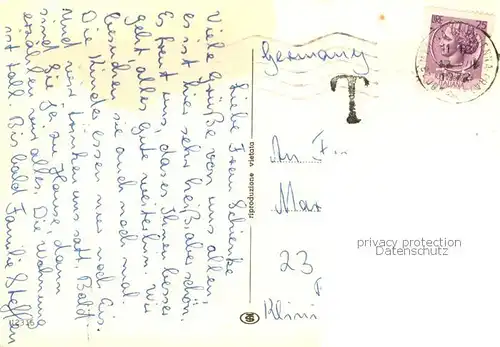 Liebe Frau Schienke
Viele Grüße von uns allen
Es ist hier sehr heiß, aber schön.
Es freut uns, dass es Ihnen besser
geht alles gute weiterhin. Wir
besuchen sie auch noch mal
Die Kinder essen nur noch Eis.
Und wir trinken uns satt. Bald
sind Sie ja zu Hause, dann
erzählen wir alles. Die Wohnung
ist toll. Bis bald Familie Steffen
riproduzione vietata
Germany
T
An F
Max
23
Klini
privacy protection
Datenschutz